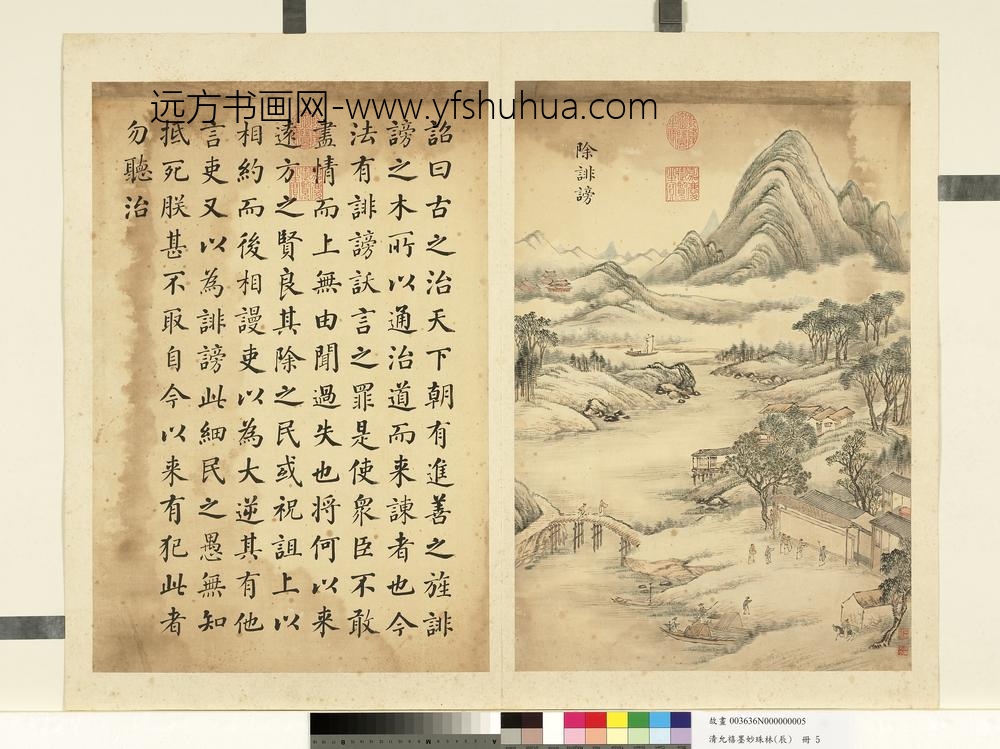 远方书画网-www.yfshuhua.com
除誹謗
詔曰古之治天下朝有進善之旌誹
謗之木所以通治道而来諫者也今
法有誹謗訞言之罪是使眾臣不敢
盡情而上無由聞過失也將何以来
遠方之賢良其除之民或祝詛上以
相約而後相謾吏以為大逆其有他
言吏又以為誹謗此細民之愚無知
抵死朕甚不取自今以来有犯此者
勿聽治
故畫 003636N000000005
清允禧墨妙珠林(辰) 冊 5